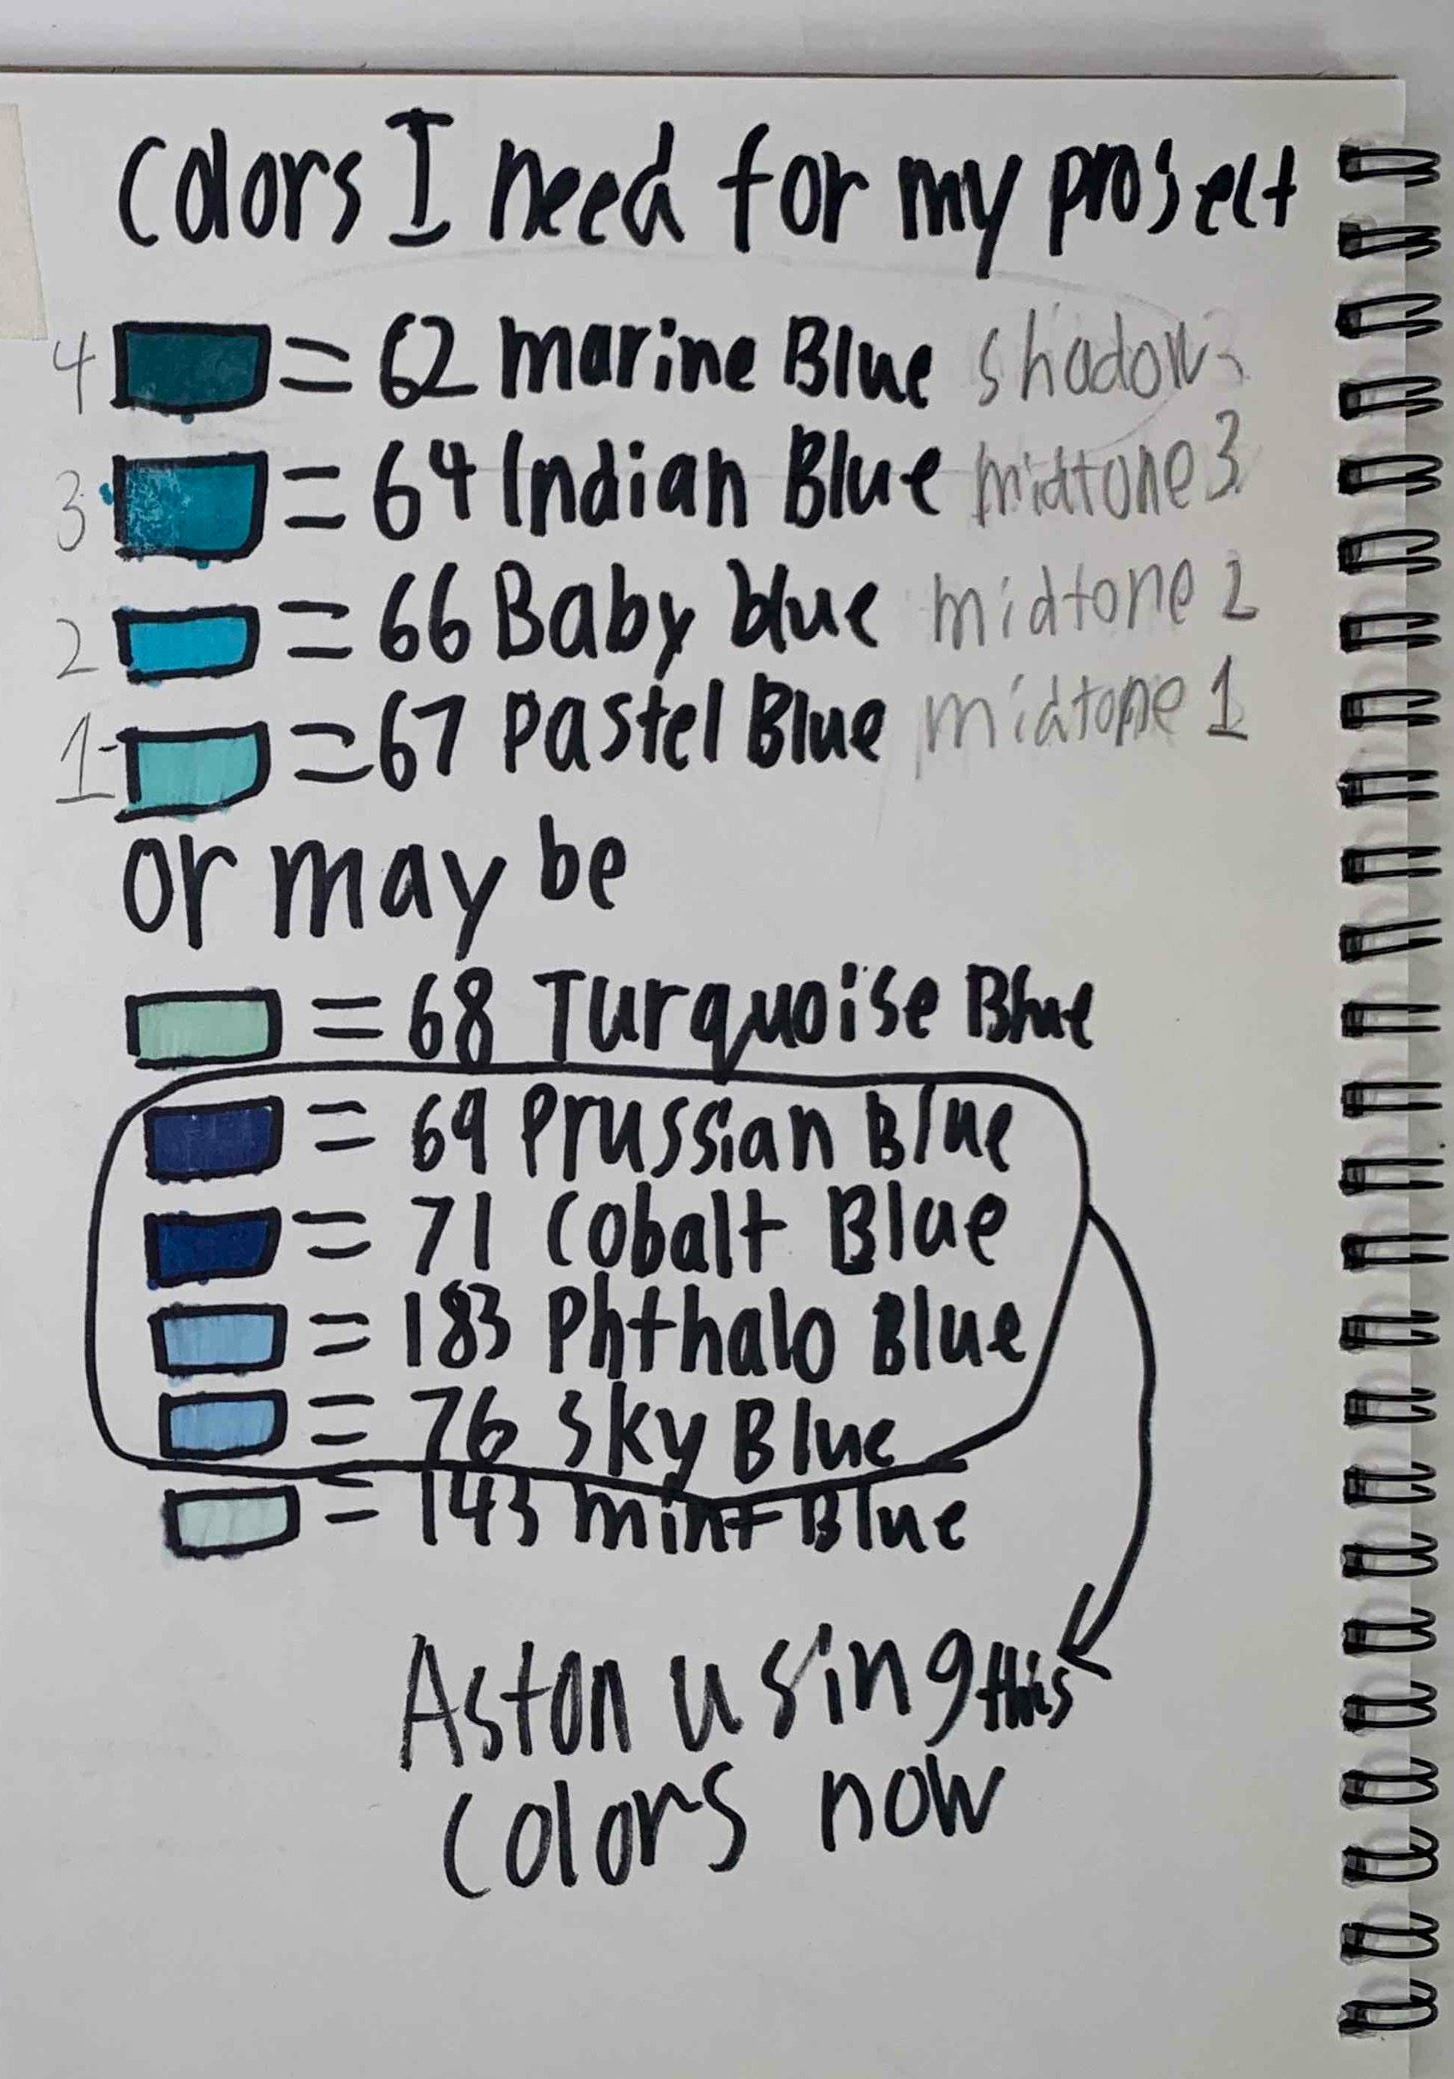 Colors I need for my project
4 = 62 marine Blue shadow
3 = 64 Indian Blue midtone 3
2 = 66 Baby blue midtone 2
1 = 67 Pastel Blue midtone 1
or may be
= 68 Turquoise Blue
= 69 Prussian Blue
= 71 Cobalt Blue
= 183 Phthalo Blue
= 76 Sky Blue
= 143 mint Blue
Aston using this
colors now